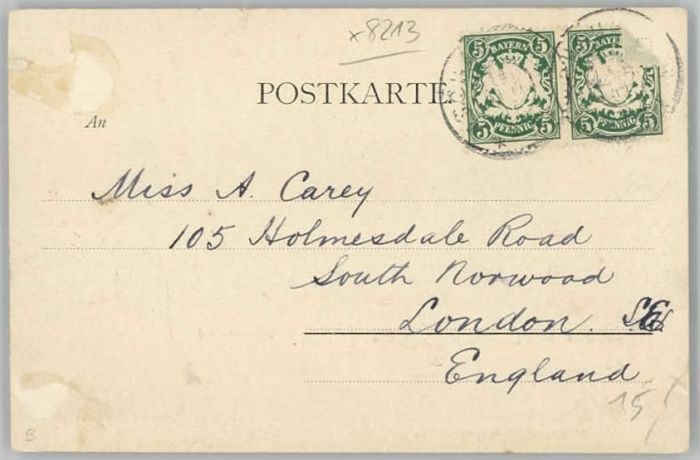 x8213
5 BAYERN 5
5 PFENNIG 5
5 BAYERN
5 PFENNIG 5
POSTKARTE
An
Miss A. Carey
105 Holmesdale Road
South Norwood
London. SE
England
15,-
B